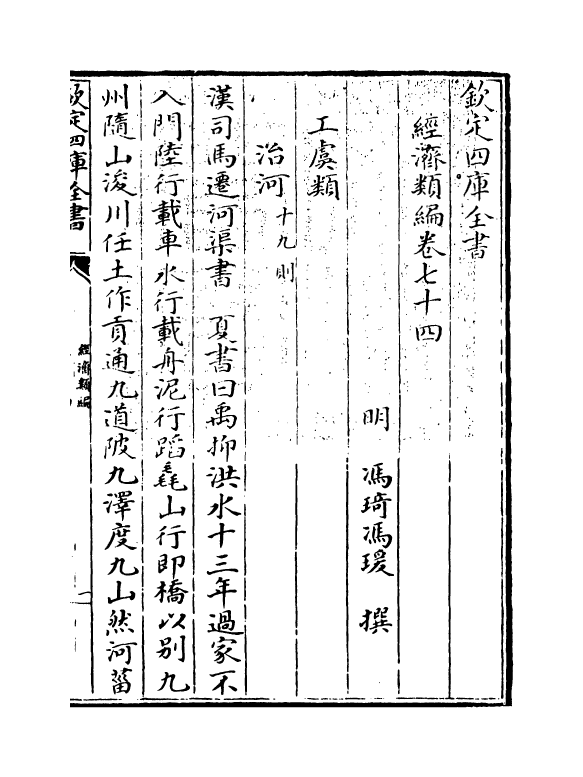 欽定四庫全書
經濟類編卷七十四
明 馮琦馮瑗 撰
工虞類
治河十九則
漢司馬遷河渠書 夏書曰禹抑洪水十三年過家不
入門陸行載車水行載舟泥行蹈毳山行即橋以别九
州隨山浚川任土作貢通九道陂九澤度九山然河菑
欽定四庫全書
經濟類編